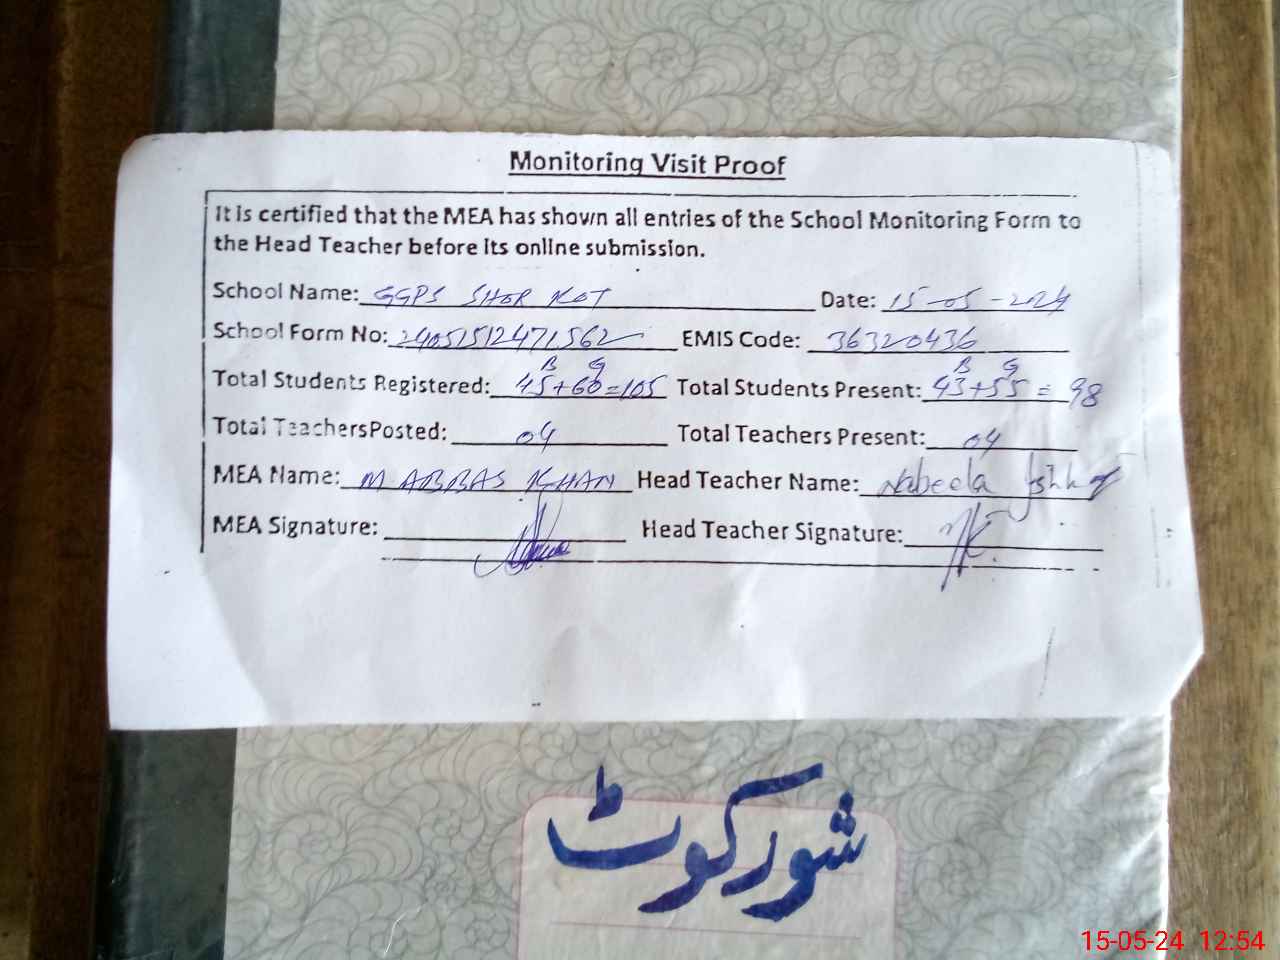 Monitoring Visit Proof
It is certified that the MEA has shown all entries of the School Monitoring Form to
the Head Teacher before its online submission.
School Name: GGPS SHOR KOT Date: 15-05-2024
School Form No: 24051512471562 EMIS Code: 36320436
B G B G
Total Students Registered: 45+60=105 Total Students Present: 43+55=98
Total Teachers Posted: 04 Total Teachers Present: 04
MEA Name: M ABBAS KHAN Head Teacher Name: Nabeela
MEA Signature: Head Teacher Signature:
شورکوٹ
15-05-24 12:54